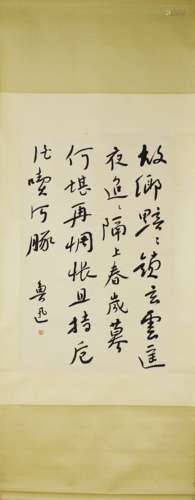 故鄉黯〻鎖玄雲遥
夜迢〻隔上春歲暮
何堪再惆悵且持卮
酒喫河豚
魯迅